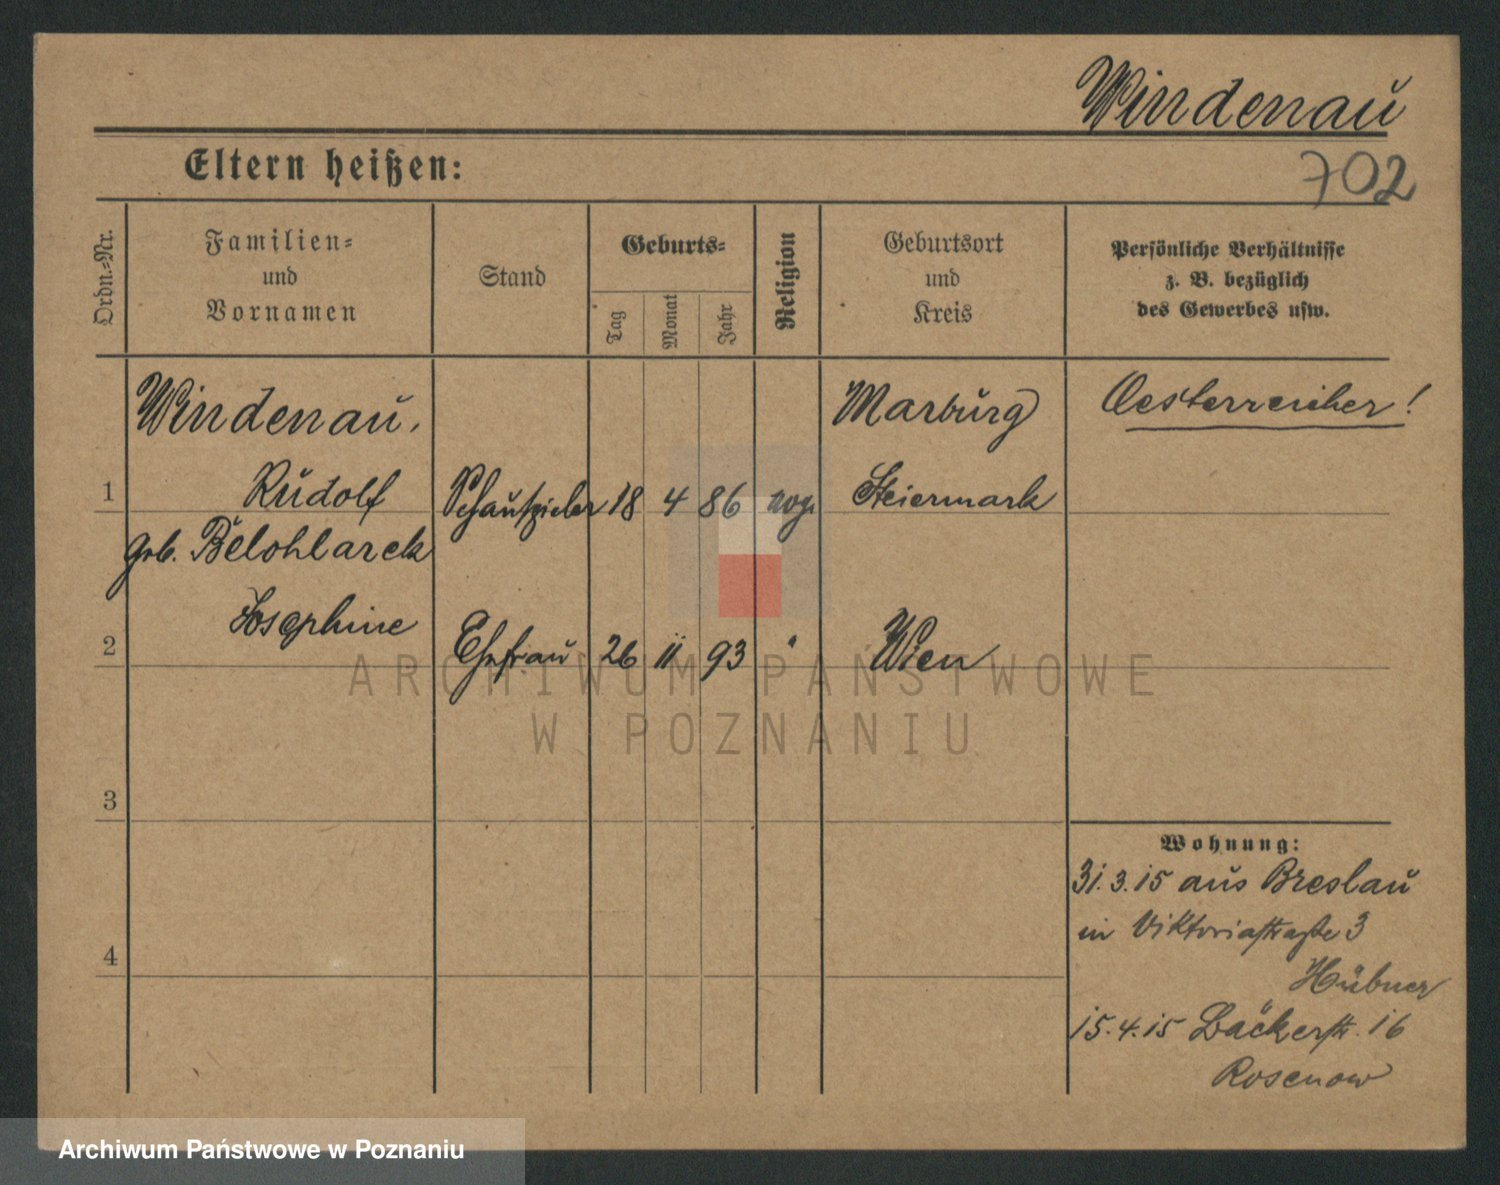 Windenau
702
Eltern heißen:
Ordn.-Nr.
Familien-
und
Vornamen
Stand
Geburts-
Tag
Monat
Jahr
Religion
Geburtsort
und
Kreis
Persönliche Verhältnisse
z. B. bezüglich
des Gewerbes usw.
Windenau,
Marburg
Oesterreicher!
1 Rudolf Schauspieler 18 4 86 Steiermark
geb. Bĕlohlarek
Josephine
2 Ehefrau 26 11 93 " Wien
ARCHIWUM PAŃSTWOWE
W POZNANIU
3
Wohnung:
31.3.15 aus Breslau
in Viktoriastraße 3
4
Hübner
15.4.15 Bäckerstr. 16
Rosenow
Archiwum Państwowe w Poznaniu